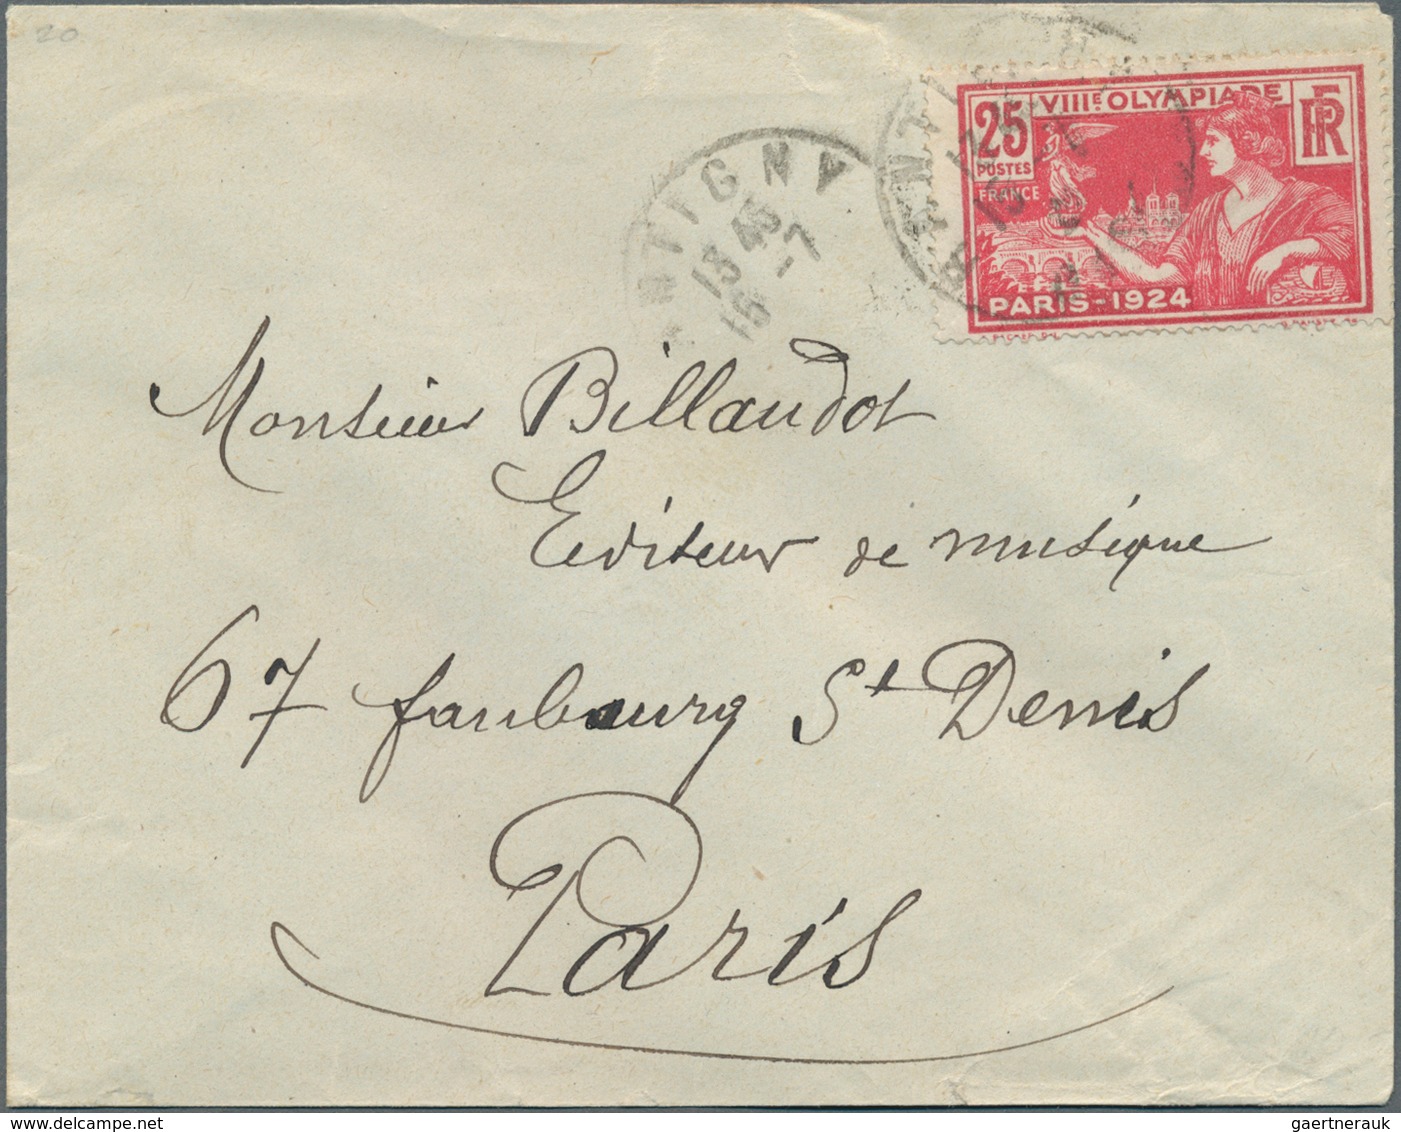 20
VIIIE OLYMPIADE
25
RF
POSTES
FRANCE
PARIS-1924
13 45
15 -7
Monsieur Billaudot
Editeur de musique
67 faubourg St Denis
Paris
gaertnerauk